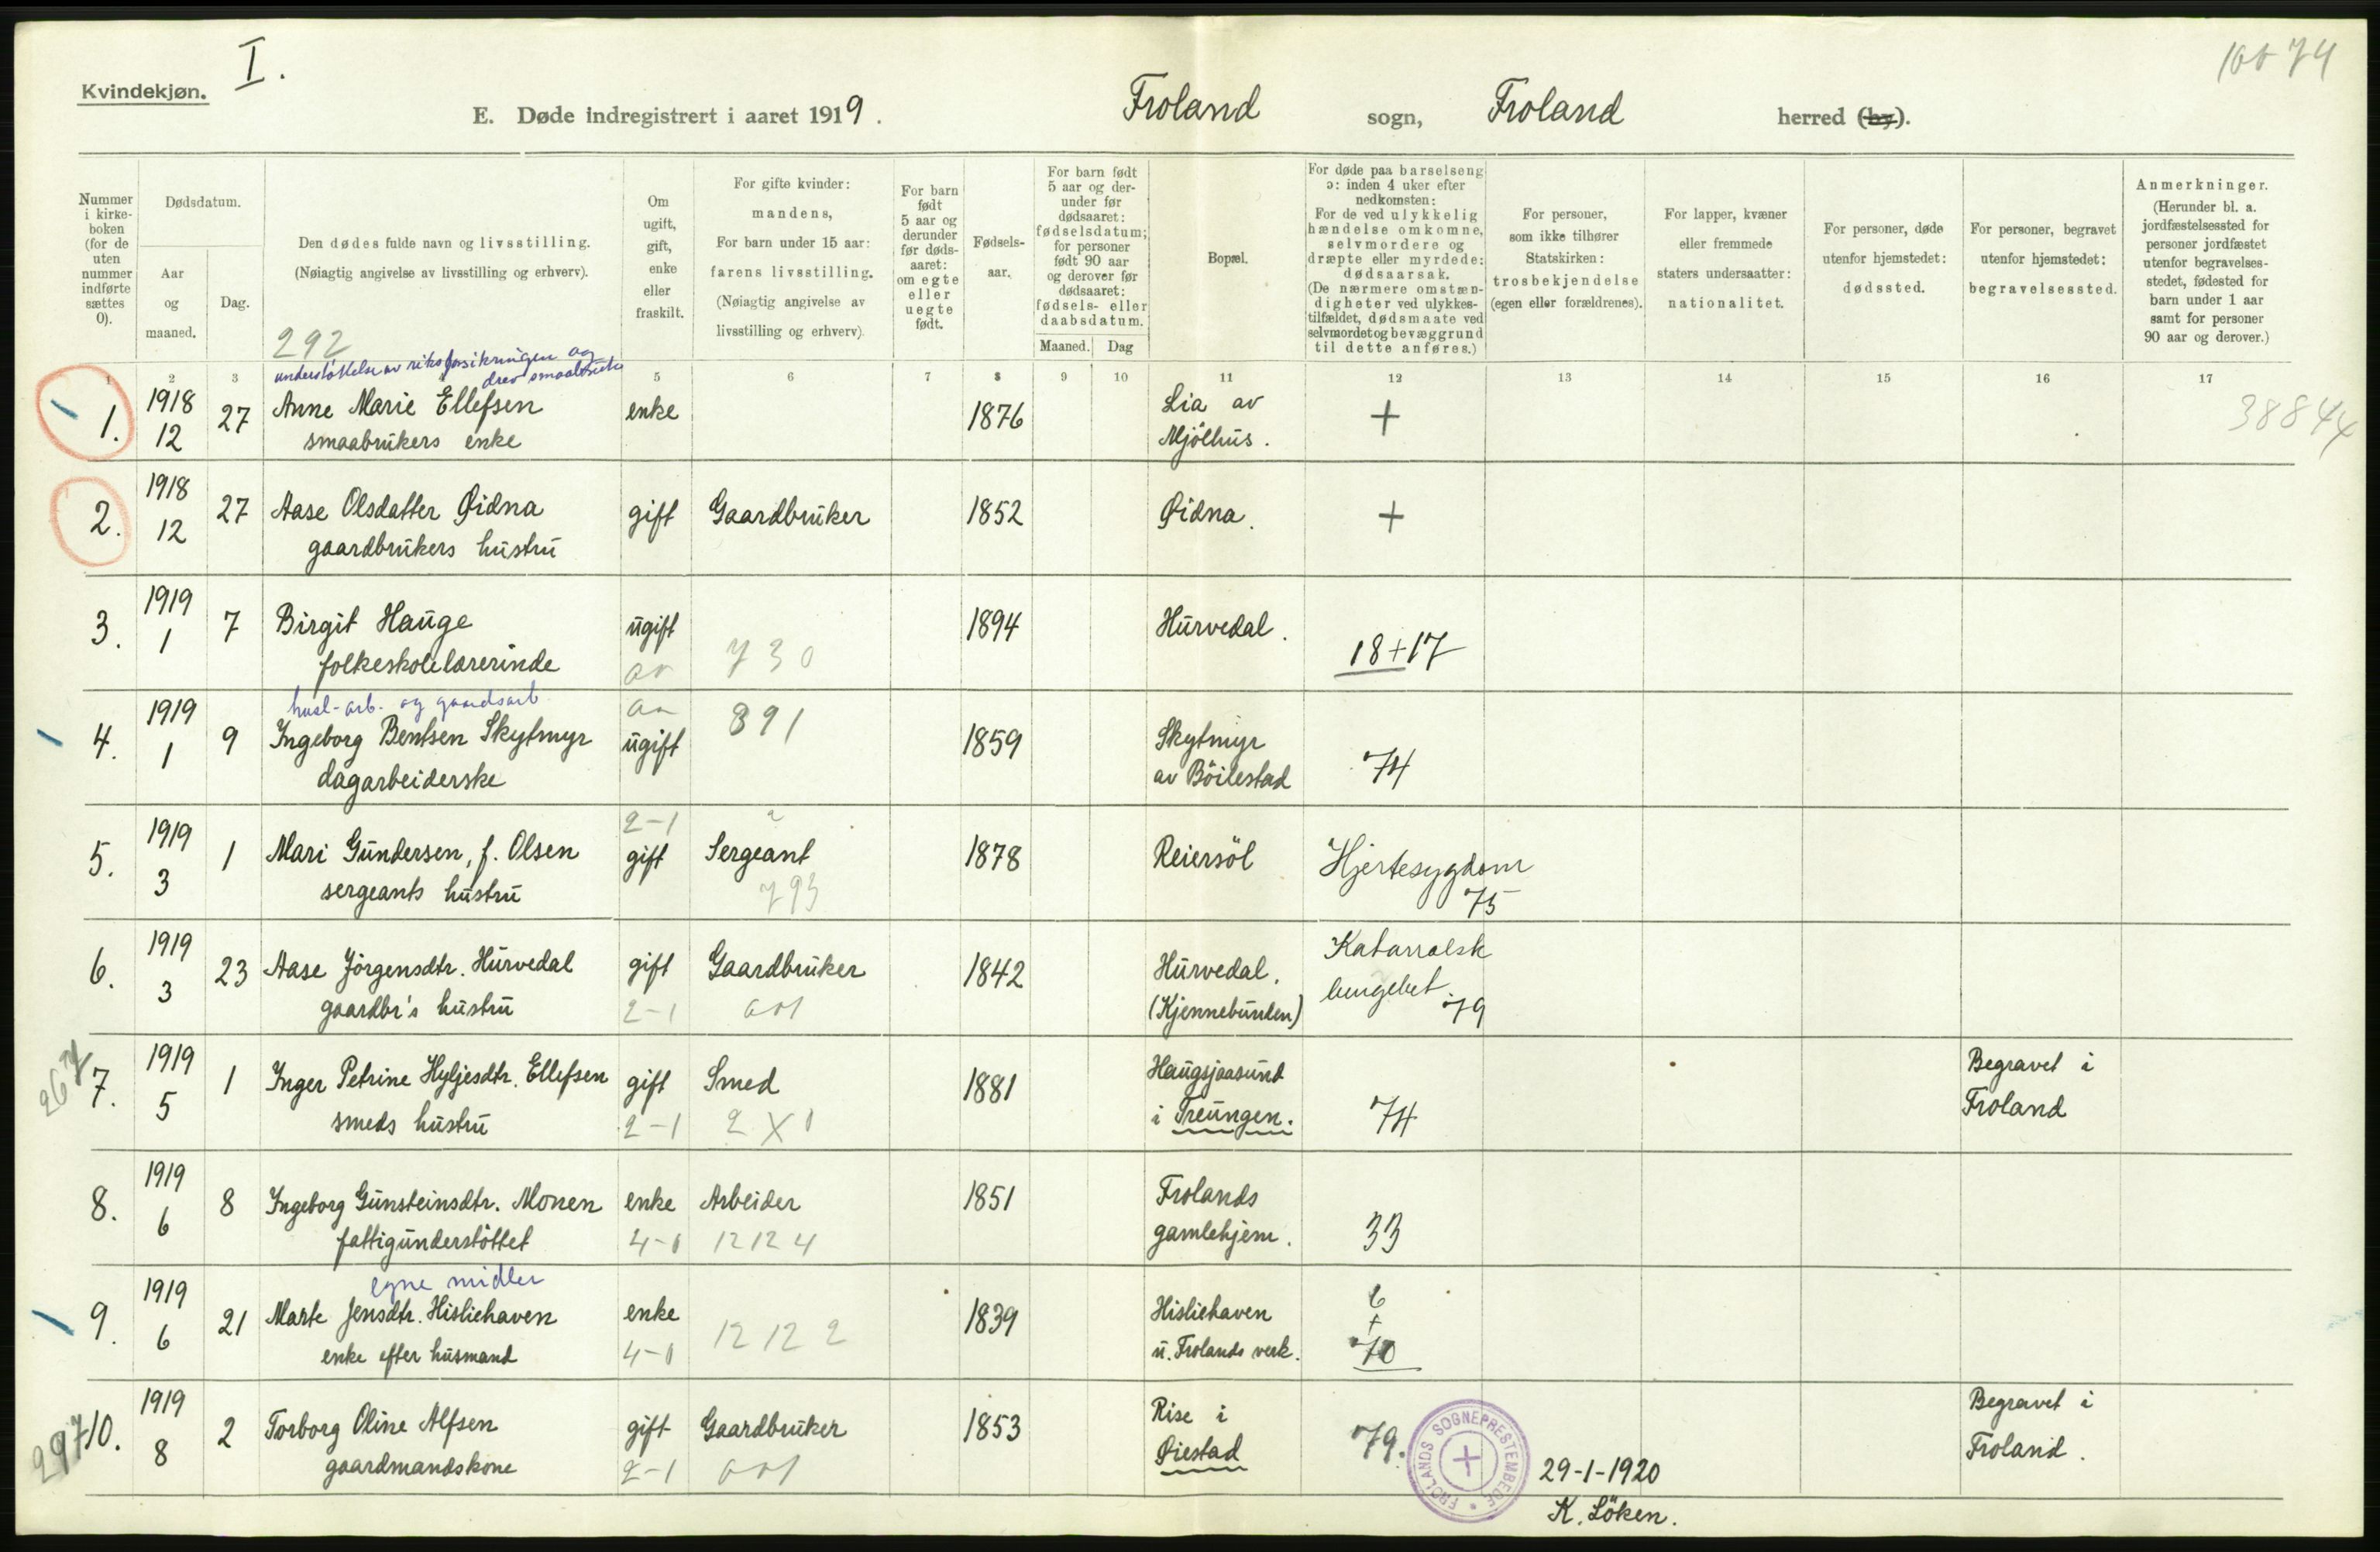 I.
Kvindekjøn.
E. Døde indregistrert i aaret 1919. Froland sogn, Froland herred (by).
Nummer i kirke-boken (for de uten nummer indførte sættes 0).
Dødsdatum.
Aar og maaned.
Dag.
Den dødes fulde navn og livsstilling.
(Nøiagtig angivelse av livsstilling og erhverv).
Om ugift, gift, enke eller fraskilt.
For gifte kvinder: mandens,
For barn under 15 aar: farens livsstilling.
(Nøiagtig angivelse av livsstilling og erhverv).
For barn født 5 aar og derunder før døds-aaret: om egte eller uegte født.
Fødsels-aar.
For barn født 5 aar og der-under før dødsaaret: fødselsdatum; for personer født 90 aar og derover før dødsaaret: fødsels- eller daabsdatum.
Maaned. Dag
Bopæl.
For døde paa barselseng ɔ: inden 4 uker efter nedkomsten:
For de ved ulykkelig hændelse omkomne, selvmordere og dræpte eller myrdede: dødsaarsak.
(De nærmere omstæn-digheter ved ulykkes-tilfældet, dødsmaate ved selvmordet og bevæggrund til dette anføres.)
For personer, som ikke tilhører Statskirken: trosbekjendelse (egen eller forældrenes).
For lapper, kvæner eller fremmede staters undersaatter: nationalitet.
For personer, døde utenfor hjemstedet: dødssted.
For personer, begravet utenfor hjemstedet: begravelsessted.
Anmerkninger.
(Herunder bl. a. jordfæstelsessted for personer jordfæstet utenfor begravelses-stedet, fødested for barn under 1 aar samt for personer 90 aar og derover.)
292
1 2 3 5 6 7 8 9 10 11 12 13 14 15 16 17
understøttelse av riksforsikringen og
drev smaabruket
1. 1918 12 27 Anne Marie Ellefsen enke 1876 Lia av + 38844
smaabrukers enke Mjölhus.
2. 1918 12 27 Aase Olsdatter Øidna gift Gaardbruker 1852 Øidna. +
gaardbrukers hustru
3. 1919 1 7 Birgit Hauge ugift 730 1894 Hurvedal. 18+17
folkeskolelærerinde
husl-arb. og gaardsarb
4. 1919 1 9 Ingeborg Bentsen Skytmyr ugift 891 1859 Skytmyr 74
dagarbeiderske av Böilestad
5. 1919 3 1 Mari Gundersen, f. Olsen 2-1 gift Sergeant 1878 Reiersöl Hjertesygdom
sergeants hustru 793 75
6. 1919 3 23 Aase Jörgensdtr. Hurvedal gift Gaardbruker 1842 Hurvedal. Katarralsk
gaardbr's hustru 2-1 (Kjennebunden) 79
267
7. 1919 5 1 Inger Petrine Hyljesdtr. Ellefsen gift Smed 1881 Haugsjaasund 74 Begravet i
smeds hustru 2-1 2X1 i Treungen. Froland
8. 1919 6 8 Ingeborg Gunsteinsdtr. Monen enke Arbeider 1851 Frolands 33
fattigunderstöttet 12124 gamlehjem.
egne midler
9. 1919 6 21 Marte Jensdtr. Hisliehaven enke 12122 1839 Hisliehaven + 70
enke efter husmand u. Frolands verk.
297
10. 1919 8 2 Torborg Oline Alfsen gift Gaardbruker 1853 Rise i 79. Begravet i
gaardmandskone 2-1 Øiestad Froland.
FROLANDS SOGNEPRESTEMBEDE
29-1-1920
K. Löken.